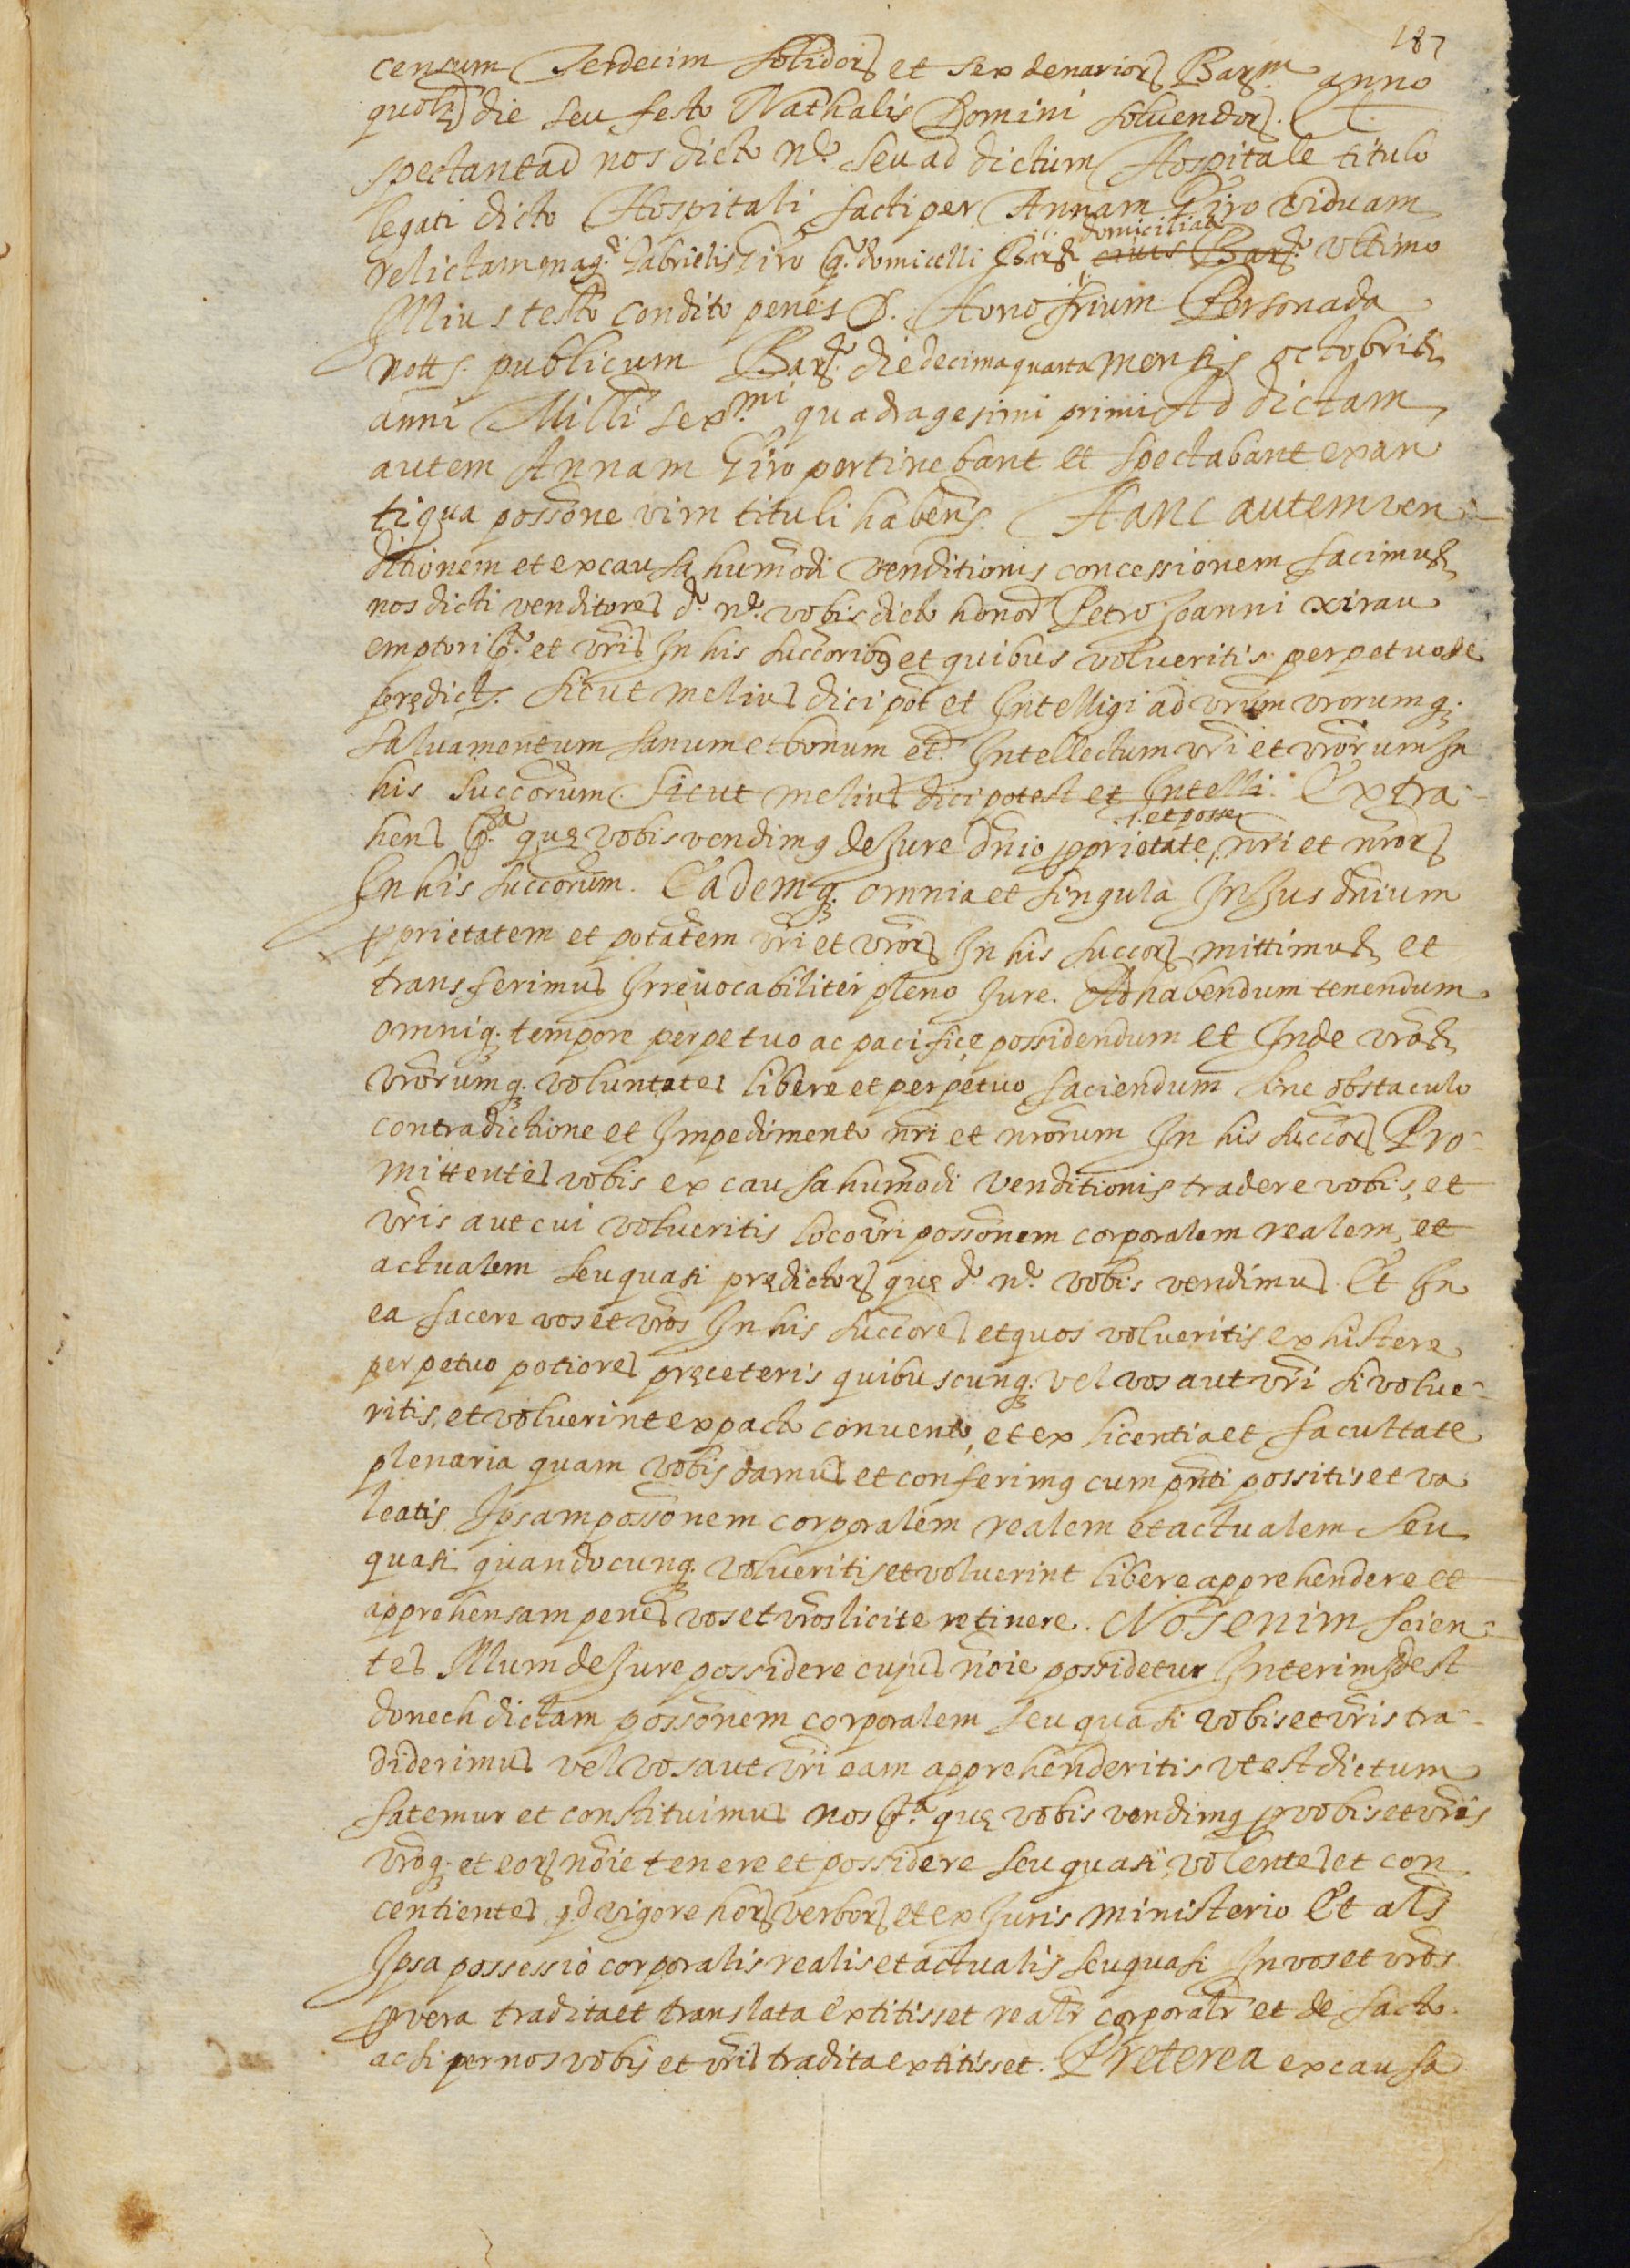 187
censum Sexdecim solidor(um) et sex denarior(um) Barᵐ. anno
quoli(bet) die seu festo Nathalis Domini soluendor(um). Et
spectant ad nos dicto nᵉ. seu ad dictum Hospitale titulo
legati dicto Hospitali facti per Annam Giro viduam
domiciliati
relictam magᶜⁱ Gabrielis Giro q. domicelli Barᵉ ciuis Barᵉ. vltimo
Illius testo condito penes D. Honofrium Personada
nott. publicum Barᵉ. die decima quarta mensis octobris
anni Milli sexᵐⁱ quadragesimi primi Ad dictam
autem Annam Giro pertinebant et spectabant ex an
tiqua possone vim tituli habens. Hanc autem ven-
ditionem et ex causa humodi venditionis concessionem facimus
nos dicti venditores dᵒ. nᵉ. vobis dicto honor Petro Joanni xirau
emptori pᵗ. et vris In his succoribus et quibus volueritis perpetuo de
prędict. sicut melius dici pot et Intelligi ad vrum vrorumq;
saluamentum sanum et bonum etᵃ. Intellectum vri et vrorum In
his succorum sicut melius dici potest et Intelli. Extra-
.i. et posse
hens pᵗᵃ quę vobis vendimus de Jure dnio proprietate nri et nror(um)
In his succorum. Eademq; omnia et singula In Jus dnium
pprietatem et potatem vri et vror(um) In his succor(um) mittimus et
transferimus Irreuocabiliter pleno Jure. Ad habendum tenendum
omniq; tempore perpetuo ac pacifice possidendum et Inde vras
vrorumq; voluntates libere et perpetuo faciendum sine obstaculo
contradictione et Impedimento nri et nrorum In his succor(um) Pro-
mittentes vobis ex causa humodi venditionis tradere vobis, et
vris aut cui volueritis loco vri possonem corporalem realem, et
actualem seu quasi prędictor(um) quę dᵒ. nᵉ. vobis vendimus. Et In
ea facere vos et vros In his succores et quos volueritis exhistere
perpetuo potiores pręceteris quibuscunq; vel vos aut vri si volue-
ritis, et voluerint ex pacto conuento, et ex licentia et facultate
plenaria quam vobis damus et conferimus cum pnti possitis et va
leatis Ipsam possonem corporalem realem et actualem seu
quasi quandocunq; volueritis et voluerint libere apprehendere et
apprehensam penes vos et vros licite retinere. Nos enim scien-
tes Illum de Jure possidere cujus noie possidetur Interim Idest
donech dictam possonem corporalem seu quasi vobis et vris tra-
diderimus vel vos aut vri eam apprehenderitis vt est dictum
fatemur et constituimus nos pᵗᵃ quę vobis vendimus p vobis et vris
vroq; et eor(um) noie tenere et possidere seu quasi, volentes et con
centientes qd vigore hor(um) verbor(um) et ex Juris ministerio Et als
Ipsa possessio corporalis realis et actualis seu quasi In vos et vros
p vera tradita et translata extitisset realr corporalr et de facto
ac si per nos vobis et vris tradita extitisset. Preterea ex causa